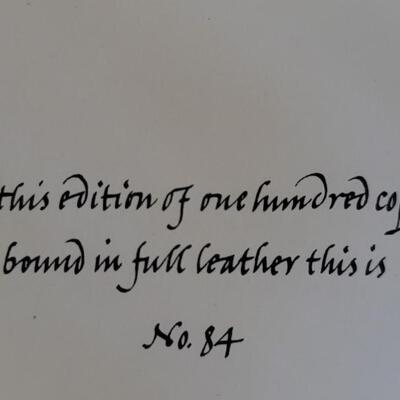 this edition of one hundred cop
bound in full leather this is
No. 84